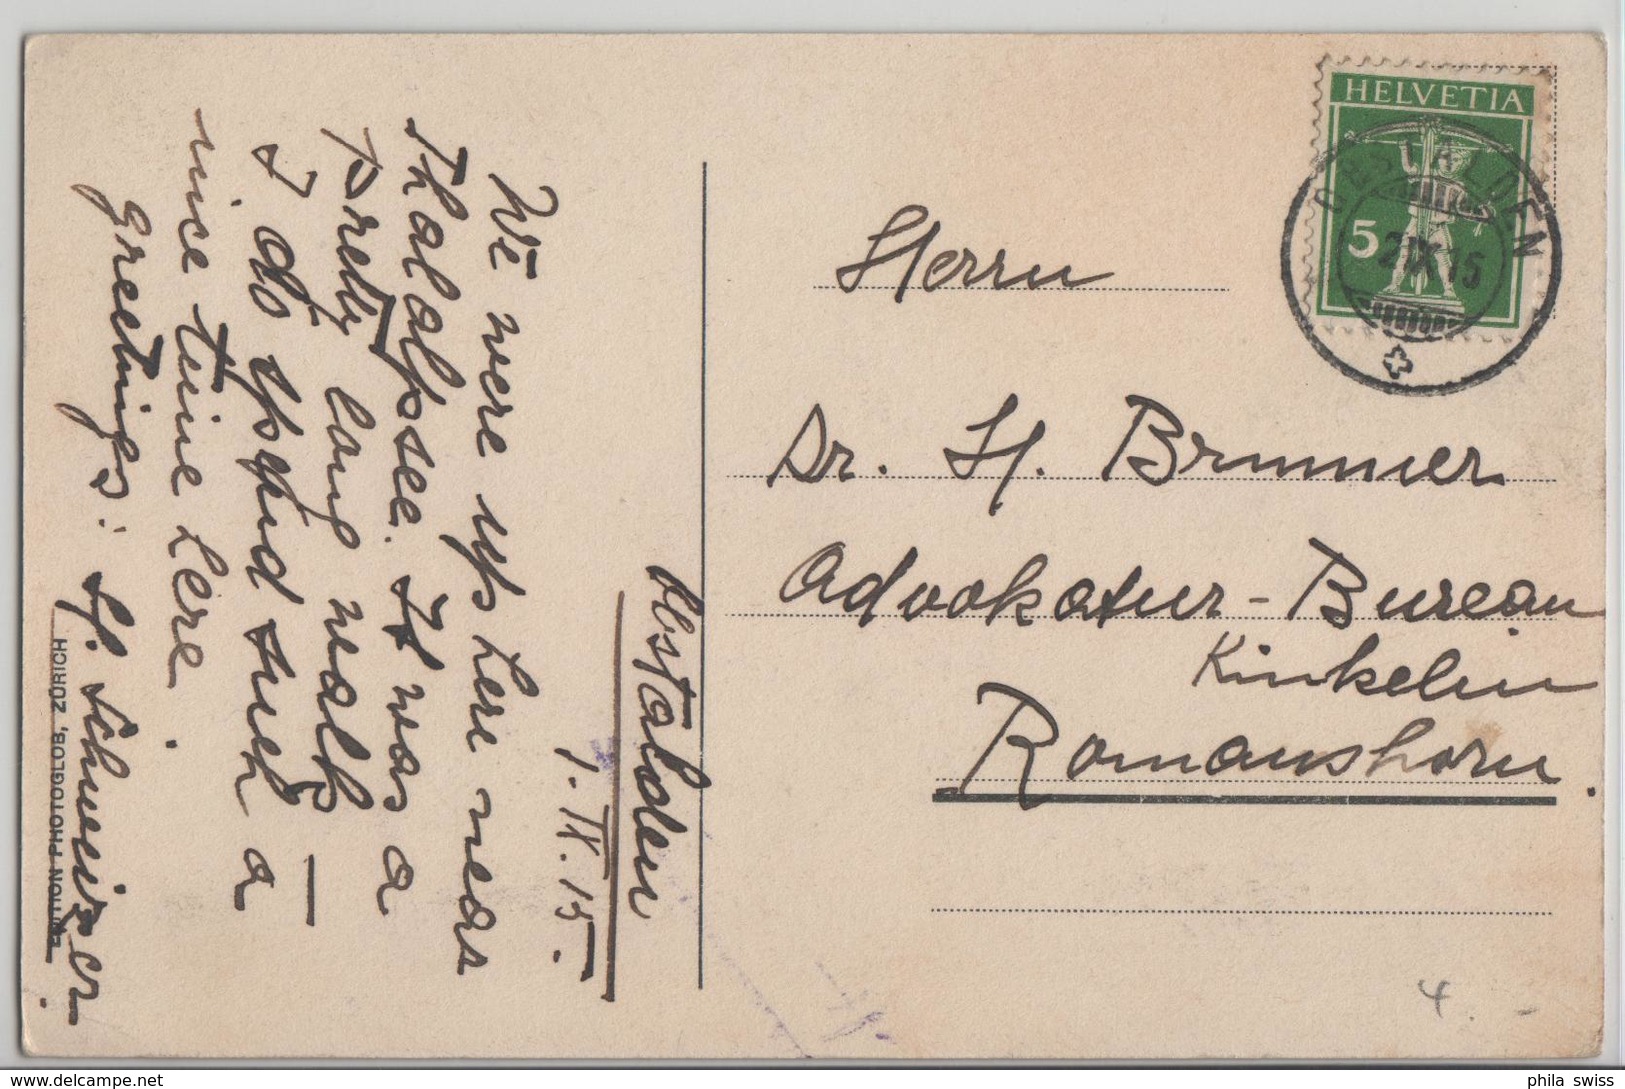 Obstalden
1. IX. 15.
We were up here near
Thalalpsee. It was a
pretty long walk –
I do spend such a
nice time here.
Greetings: H. Schweizer.
EDITION PHOTOGLOB, ZÜRICH
HELVETIA
5
OBSTALDEN
2.IX.15
Herrn
Dr. H. Brunner
Advokatur-Bureau
Kinkelin
Romanshorn.
4.-
phila swiss